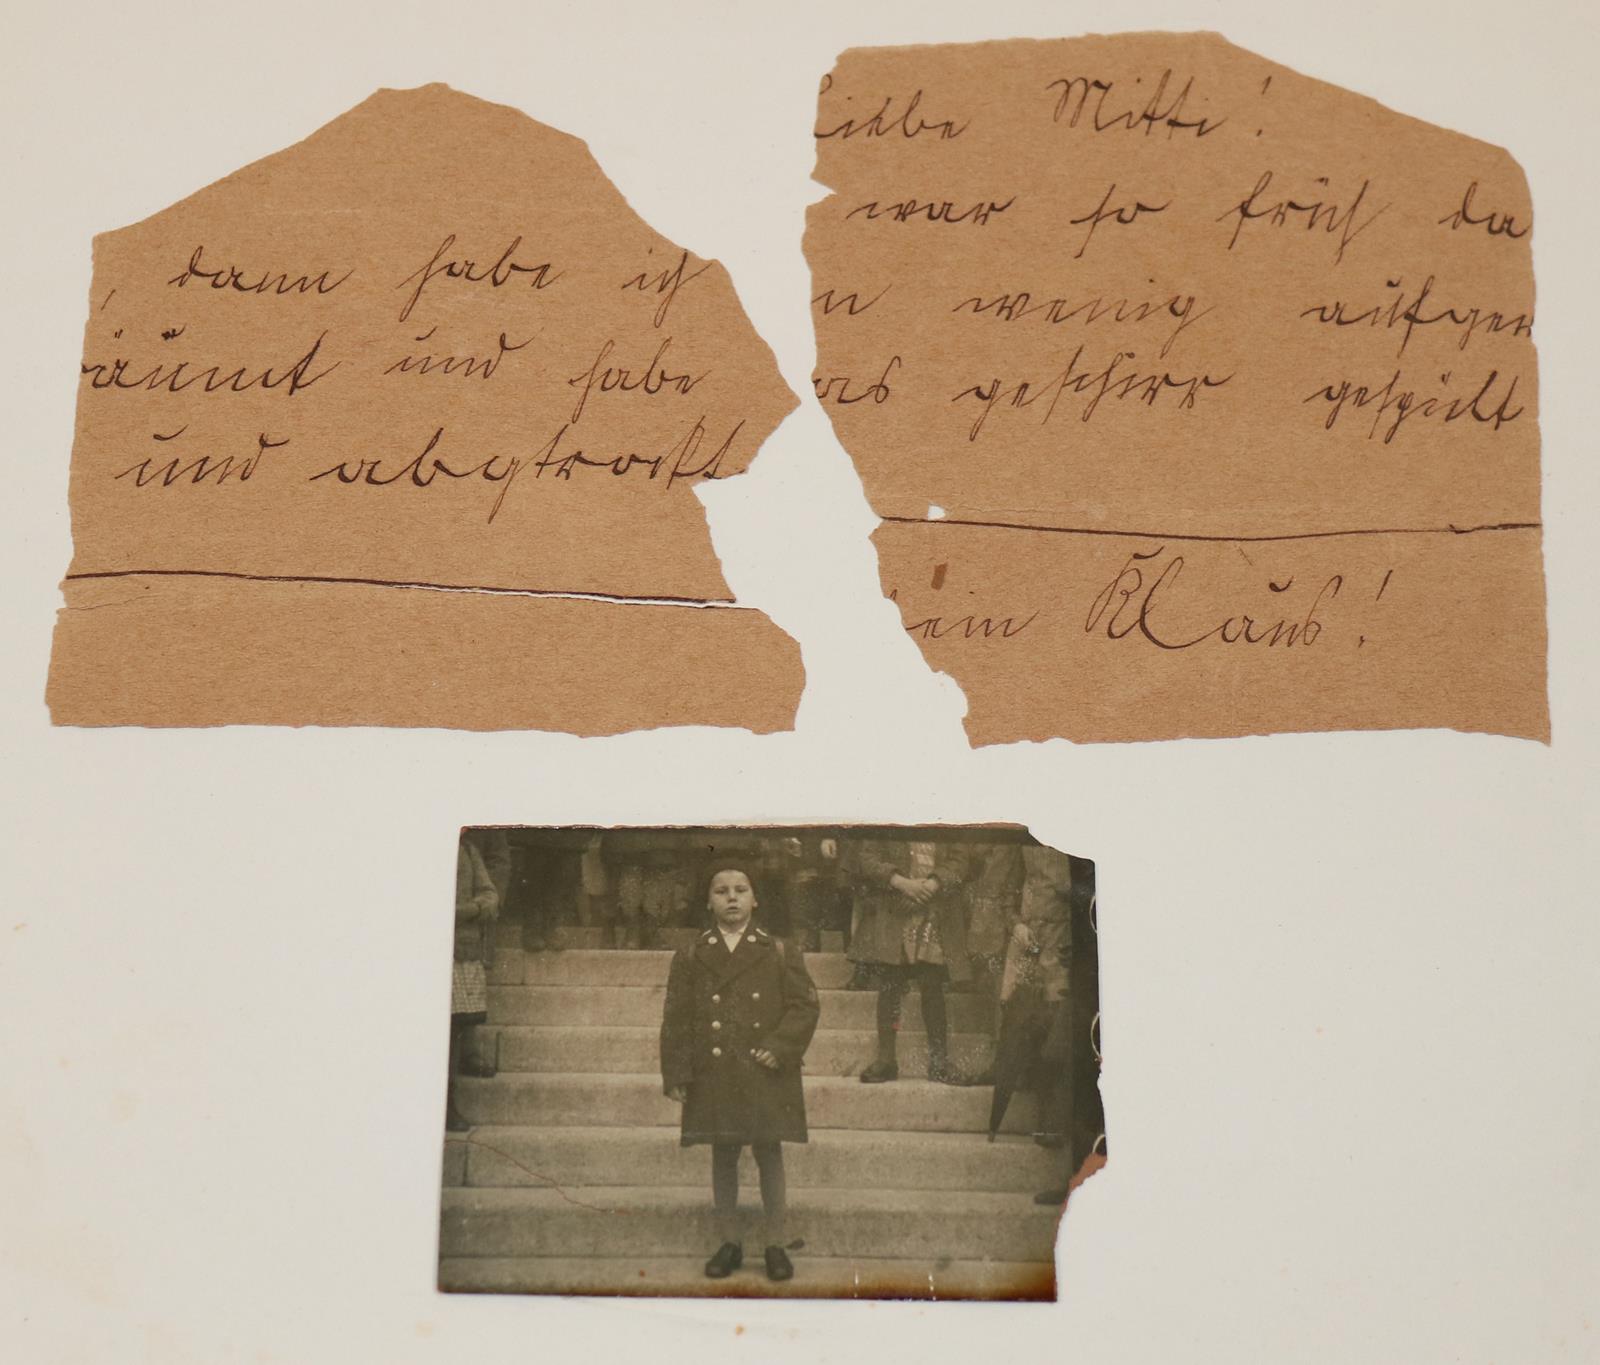 , dann habe ich
äumt und habe
und abgtrockt
Liebe Mitti!
war so früh da
n wenig aufger
as geschirr gespült
ein Klaus!